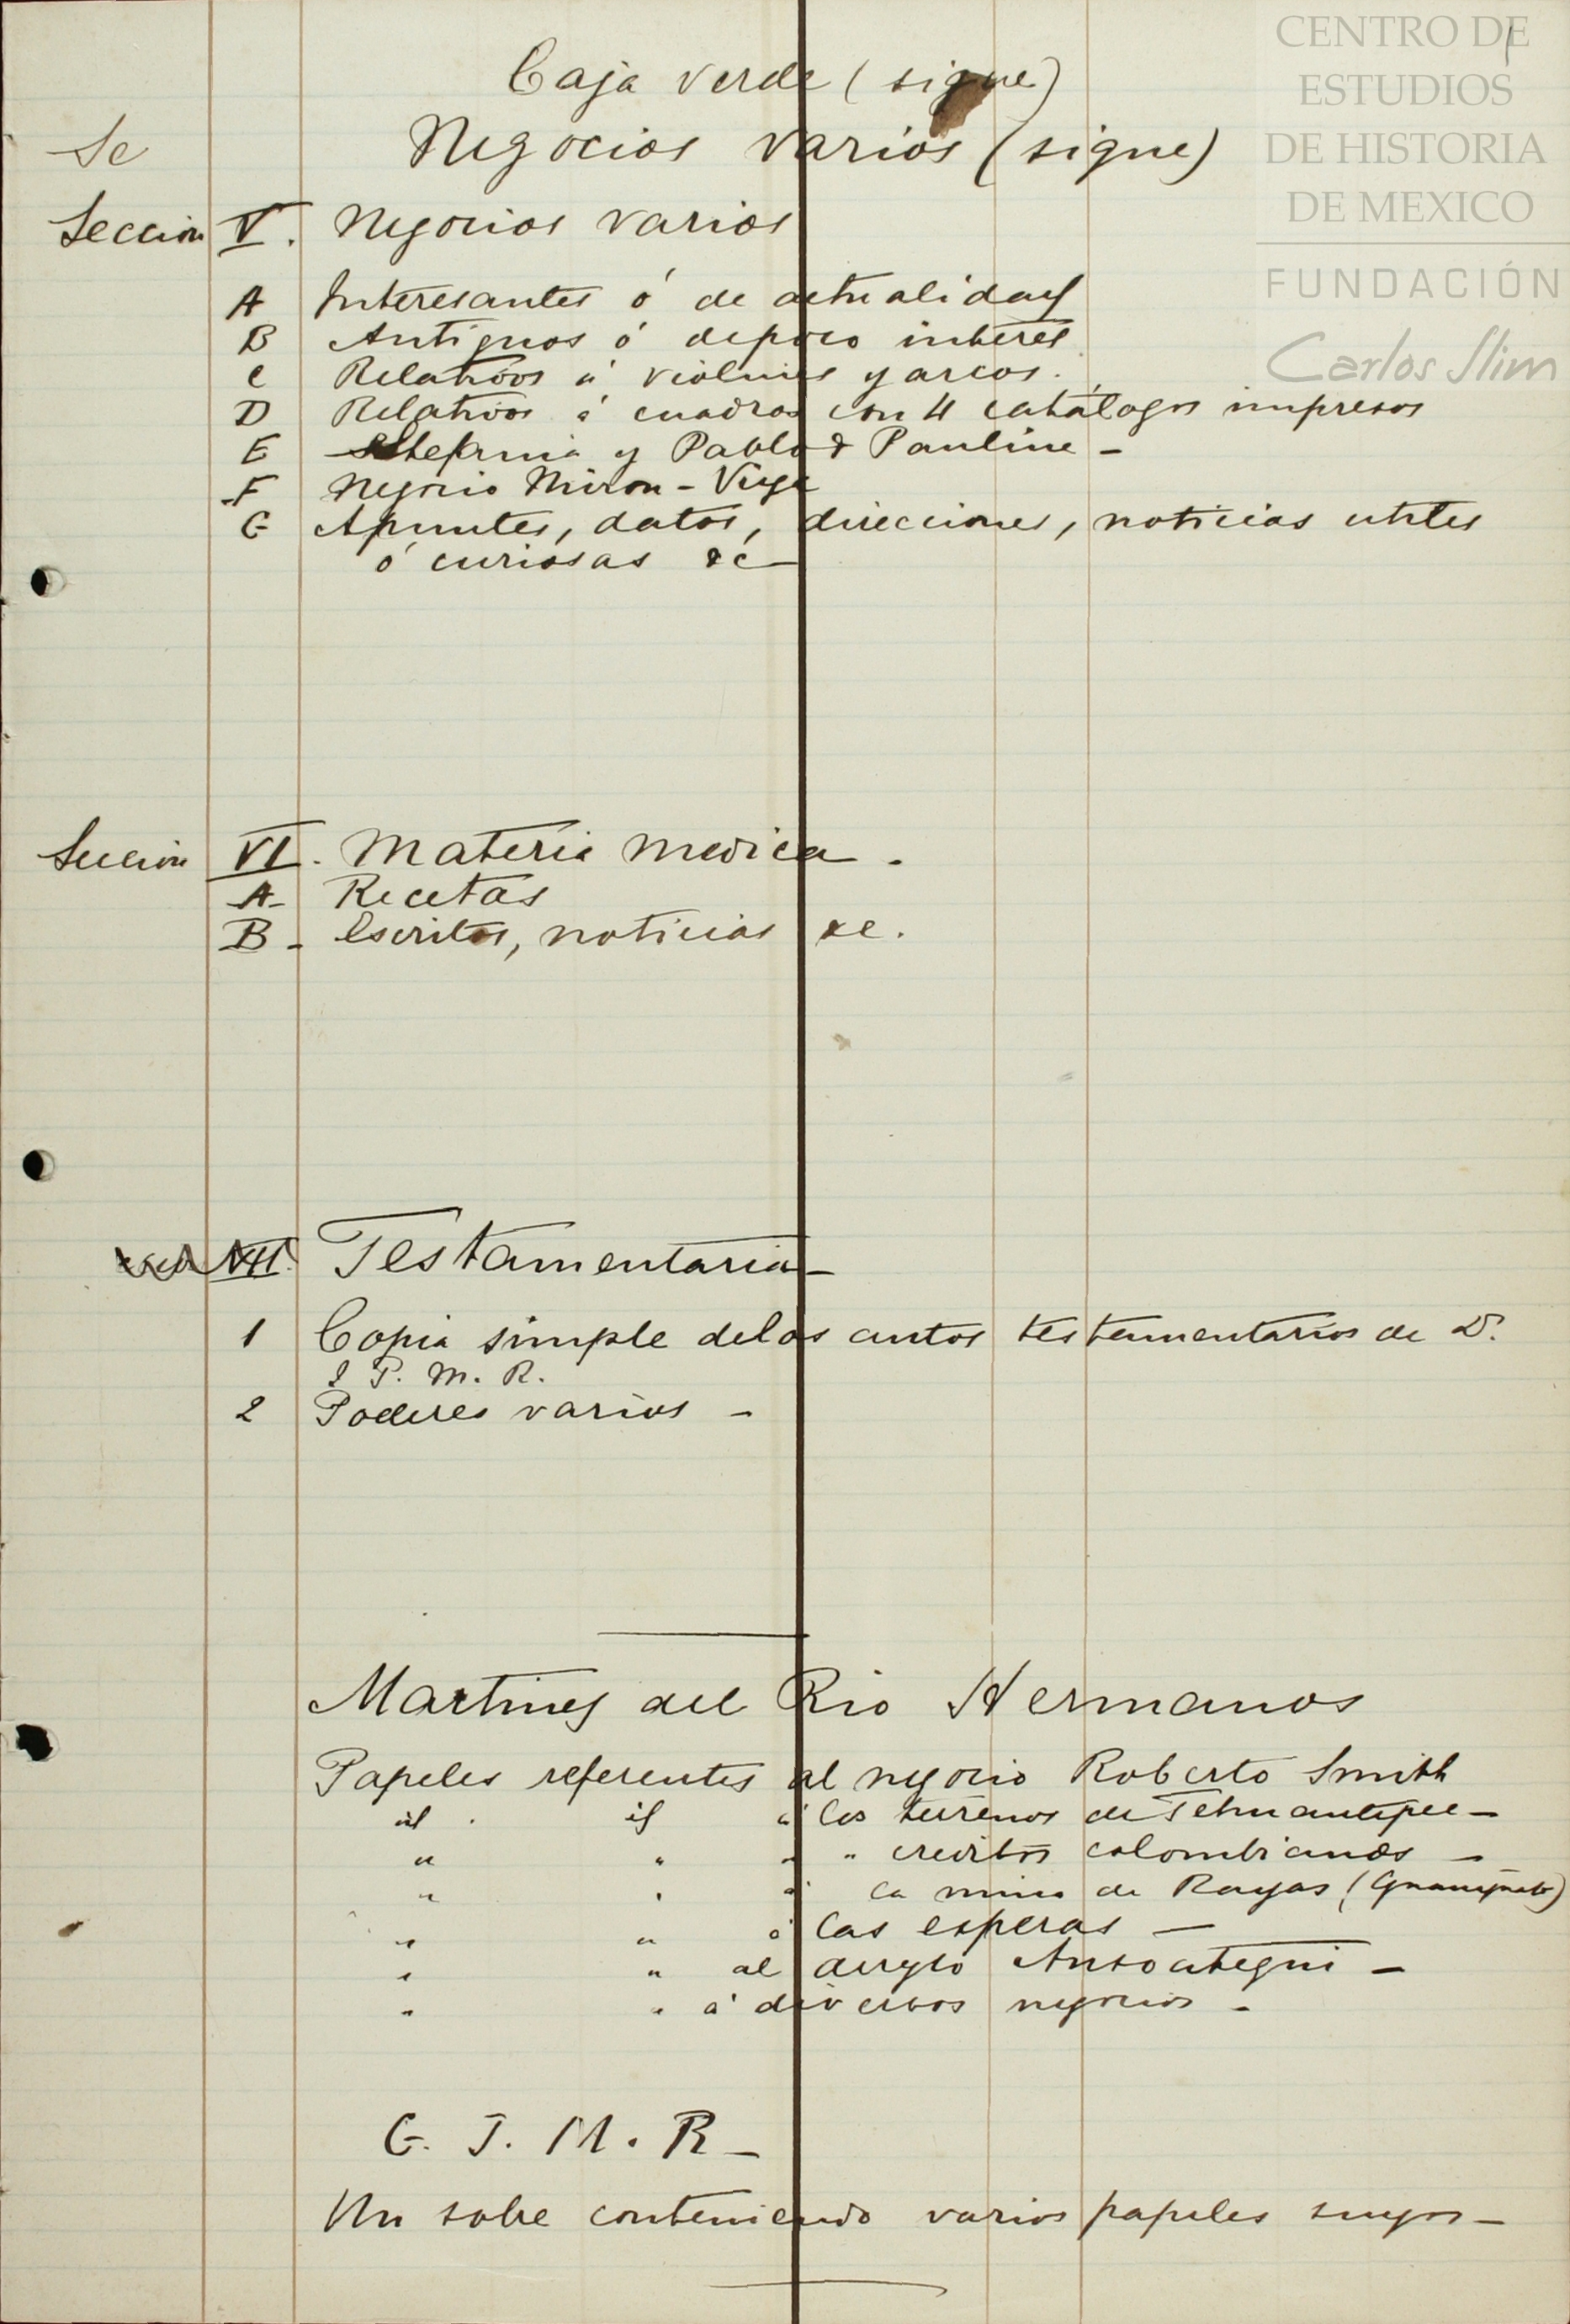 CENTRO DE
ESTUDIOS
DE HISTORIA
DE MEXICO
FUNDACIÓN
Carlos Slim
Caja verde (sigue)
Se Negocios varios (sigue)
Seccion V. Negocios varios
A Interesantes ó de actualidad
B Antiguos ó de poco interes
C Relativos á violines y arcos.
D Relativos á cuadros con 4 catálogos impresos
E Stefania y Pablo & Pauline -
F Negocio Miron -
G Apuntes, datos, direcciones, noticias utiles
ó curiosas &c
Seccion VI. Materia medica.
A- Recetas
B- Escritos, noticias &c.
VII. Testamentaria -
1 Copia simple de los autos testamentarios de D.
P. M. R.
2 Poderes varios -
Martinez del Rio Hermanos
Papeles referentes al negocio Roberto Smith
id. id á los terrenos de Tehuantepec -
" " " " creditos colombianos -
" " á la mina de Rayas (Guanajuato)
" " á las esperas -
" " al arreglo Ansoategui -
" " á diversos negocios -
G. J. M. R -
Un sobre conteniendo varios papeles suyos -